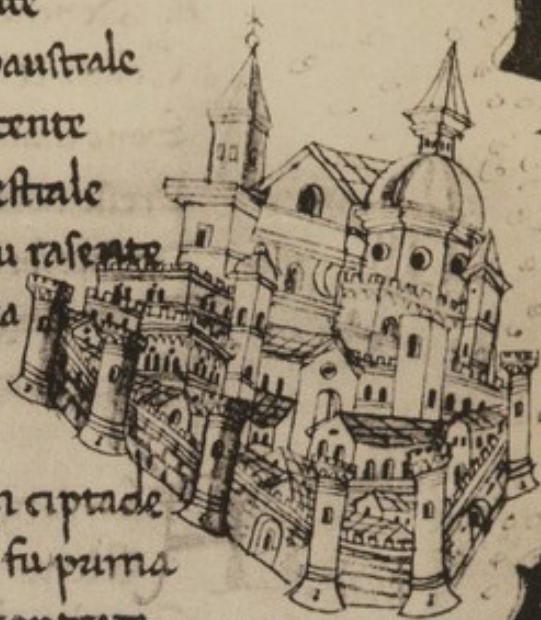 paustrale
tente
estiale
u rasente
a
n ciptade
fu prima